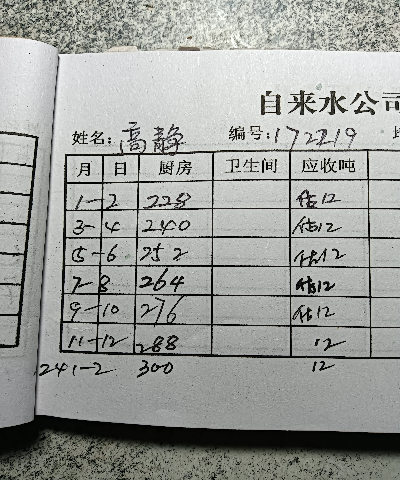 自来水公司
姓名: 高静 编号: 172219
月 日 厨房 卫生间 应收吨
1-2 228 估12
3-4 240 估12
5-6 252 估12
7-8 264 估12
9-10 276 估12
11-12 288 12
241-2 300 12